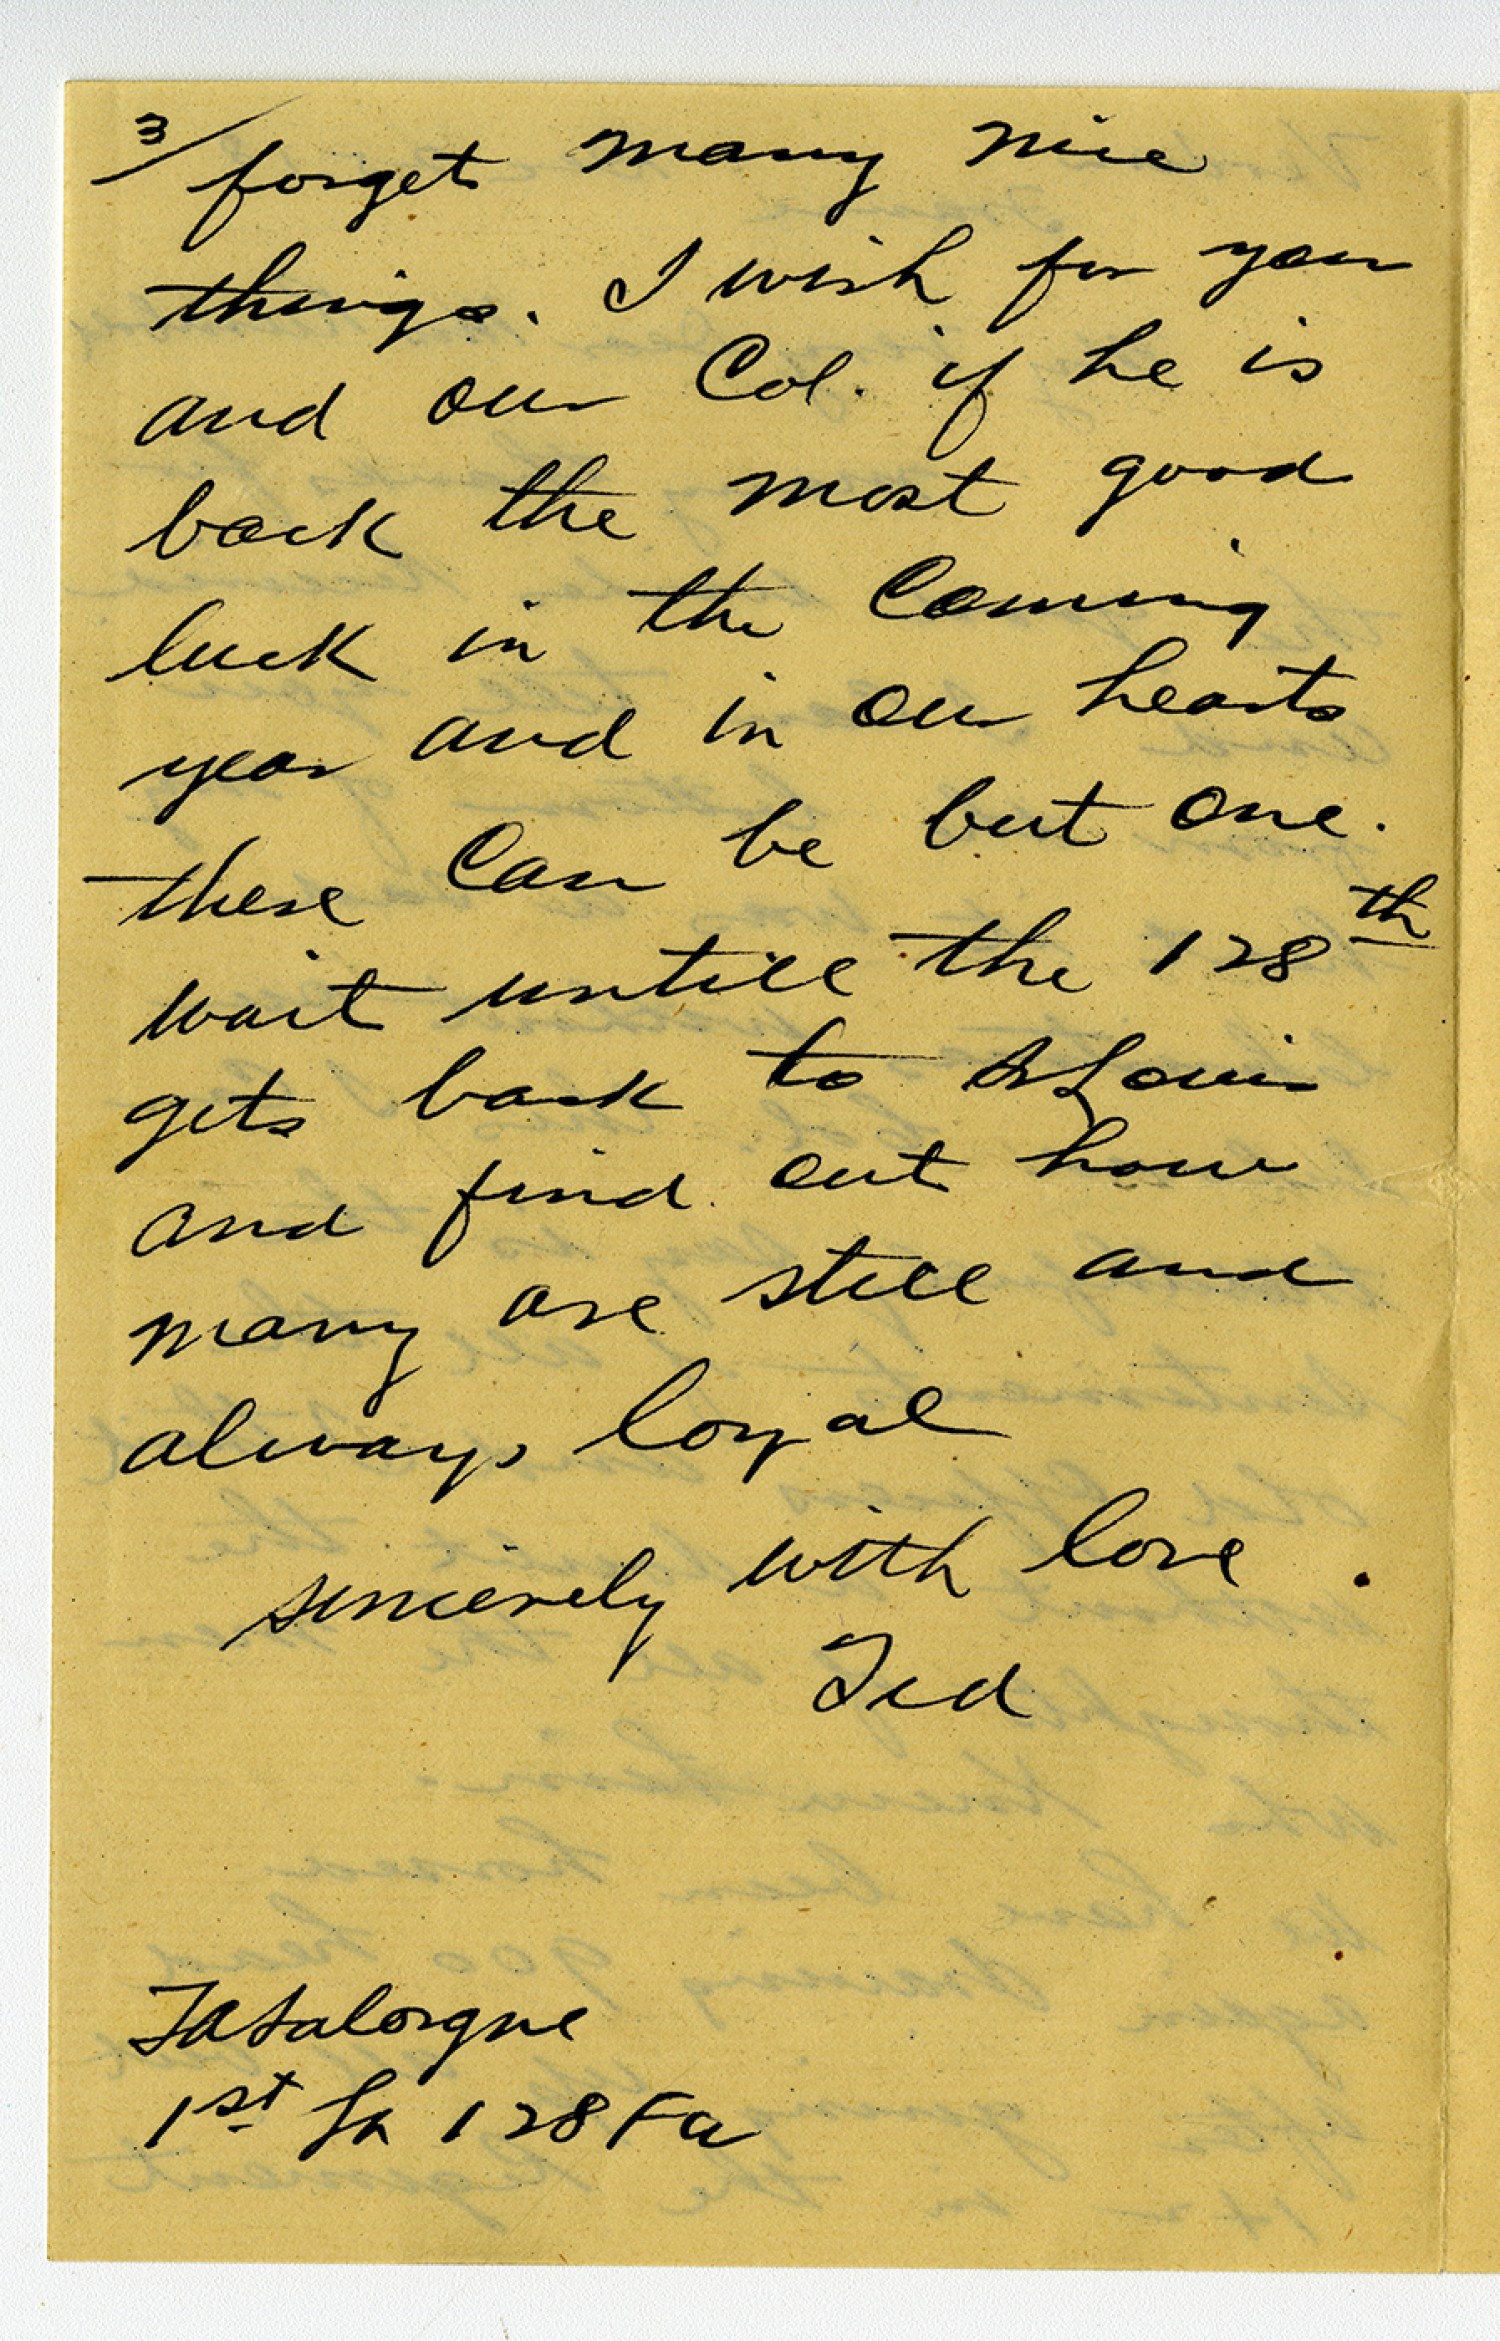 3/
forget many nice
things. I wish for you
and our Col. if he is
back the most good
luck in the Coming
year and in our hearts
there Can be but one.
wait untill the 128th
gets back to St Louis
and find out how
many are still and
always loyal
sincerely with love
Ted
1st Lt 128 Fa